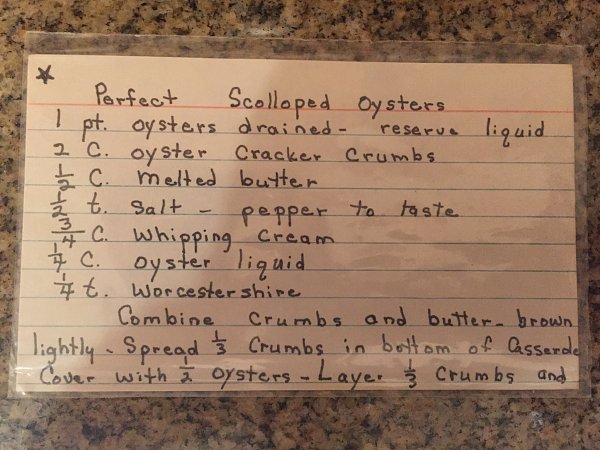 Perfect Scolloped Oysters
1 pt. oysters drained - reserve liquid
2 C. oyster Cracker Crumbs
1/2 C. melted butter
1/2 t. Salt - pepper to taste
3/4 C. Whipping Cream
1/4 C. oyster liquid
1/4 t. Worcestershire
Combine Crumbs and butter - brown
lightly - Spread 1/3 Crumbs in bottom of Casserole
Cover with 1/2 oysters - Layer 1/3 Crumbs and